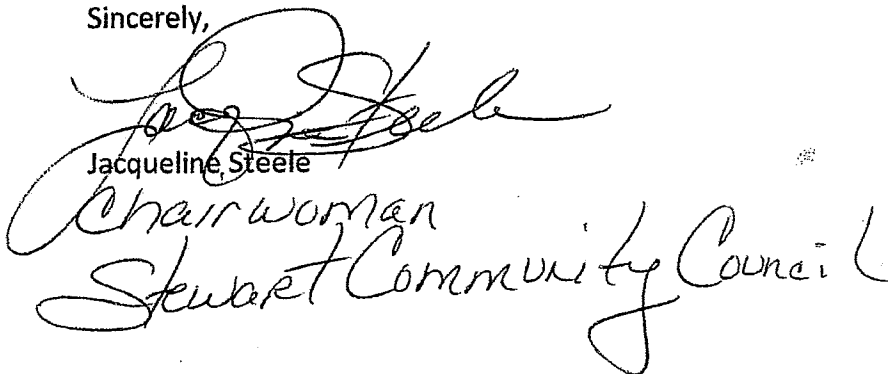 Sincerely,
Jacqueline Steele
Jacqueline Steele
Chairwoman
Stewart Community Council